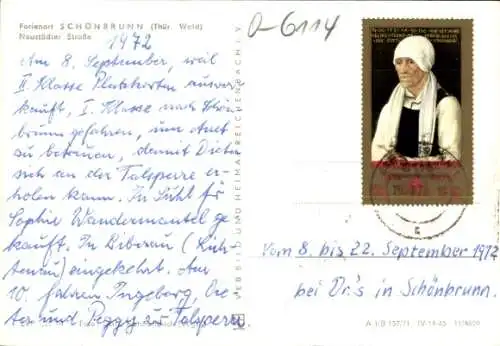 Ferienort SCHÖNBRUNN (Thür. Wald)
Neustädter Straße
1972
O-6114
Am 8. September, weil
II. Klasse Platzkarten ausver-
kauft, I. Klasse nach Schön-
brunn gefahren, um Anet
zu betreuen, damit Dieter
sich an der Talsperre er-
holen kann. In Suhl für
Sophie Wandermantel ge-
kauft. In Biberau (Lich-
tenau) eingekehrt. Am
10. fahren Ingeborg,
und Peggy zur Talsperre.
VEB BILD UND HEIMAT REICHENBACH I. V.
Vom 8. bis 22. September 1972
bei Dr.'s in Schönbrunn.